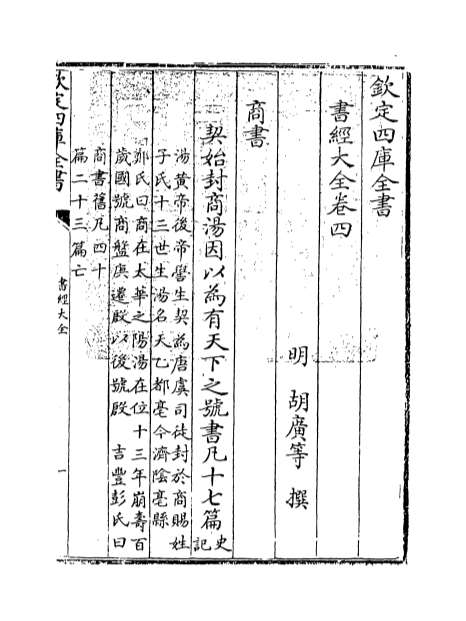 欽定四庫全書
書經大全卷四
明 胡廣等 撰
商書
契始封商湯因以為有天下之號書凡十七篇史
記
湯黃帝後帝嚳生契為唐虞司徒封於商賜姓
子氏十三世生湯名天乙都亳今濟陰亳縣
鄭氏曰商在太華之陽湯在位十三年崩壽百
歲國號商盤庚遷殷以後號殷 吉豐彭氏曰
商書舊凡四十
篇二十三篇亡
欽定四庫全書
書經大全
一